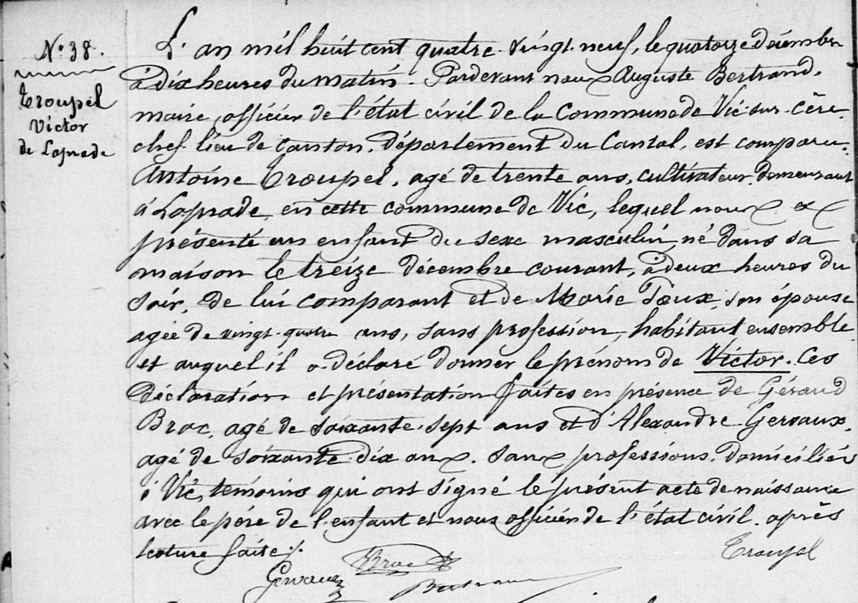 N° 38.
Troupel
Victor
de Laprade
L'an mil huit cent quatre-vingt neuf, le quatorze décembre
à dix heures du matin. Pardevant nous Auguste Bertrand,
maire, officier de l'état civil de la Commune de Vic-sur-Cère
chef lieu de canton, département du Cantal, est comparu
Antoine Troupel, agé de trente ans, cultivateur, demeurant
à Laprade, en cette commune de Vic, lequel nous a
présenté un enfant du sexe masculin, né dans sa
maison le treize décembre courant, à deux heures du
soir, de lui comparant et de Marie Toux, son épouse
agée de vingt-quatre ans, sans profession, habitant ensemble
et auquel il a déclaré donner le prénom de Victor. Ces
déclaration et présentation faites en présence de Géraud
Broc, agé de soixante-sept ans et d'Alexandre Gervaux,
agé de soixante-dix ans, sans professions, domiciliés
à Vic, témoins qui ont signé le présent acte de naissance
avec le père de l'enfant et nous officier de l'état civil, après
lecture faite /.
Troupel
Broc
Gervaux
Bertrand